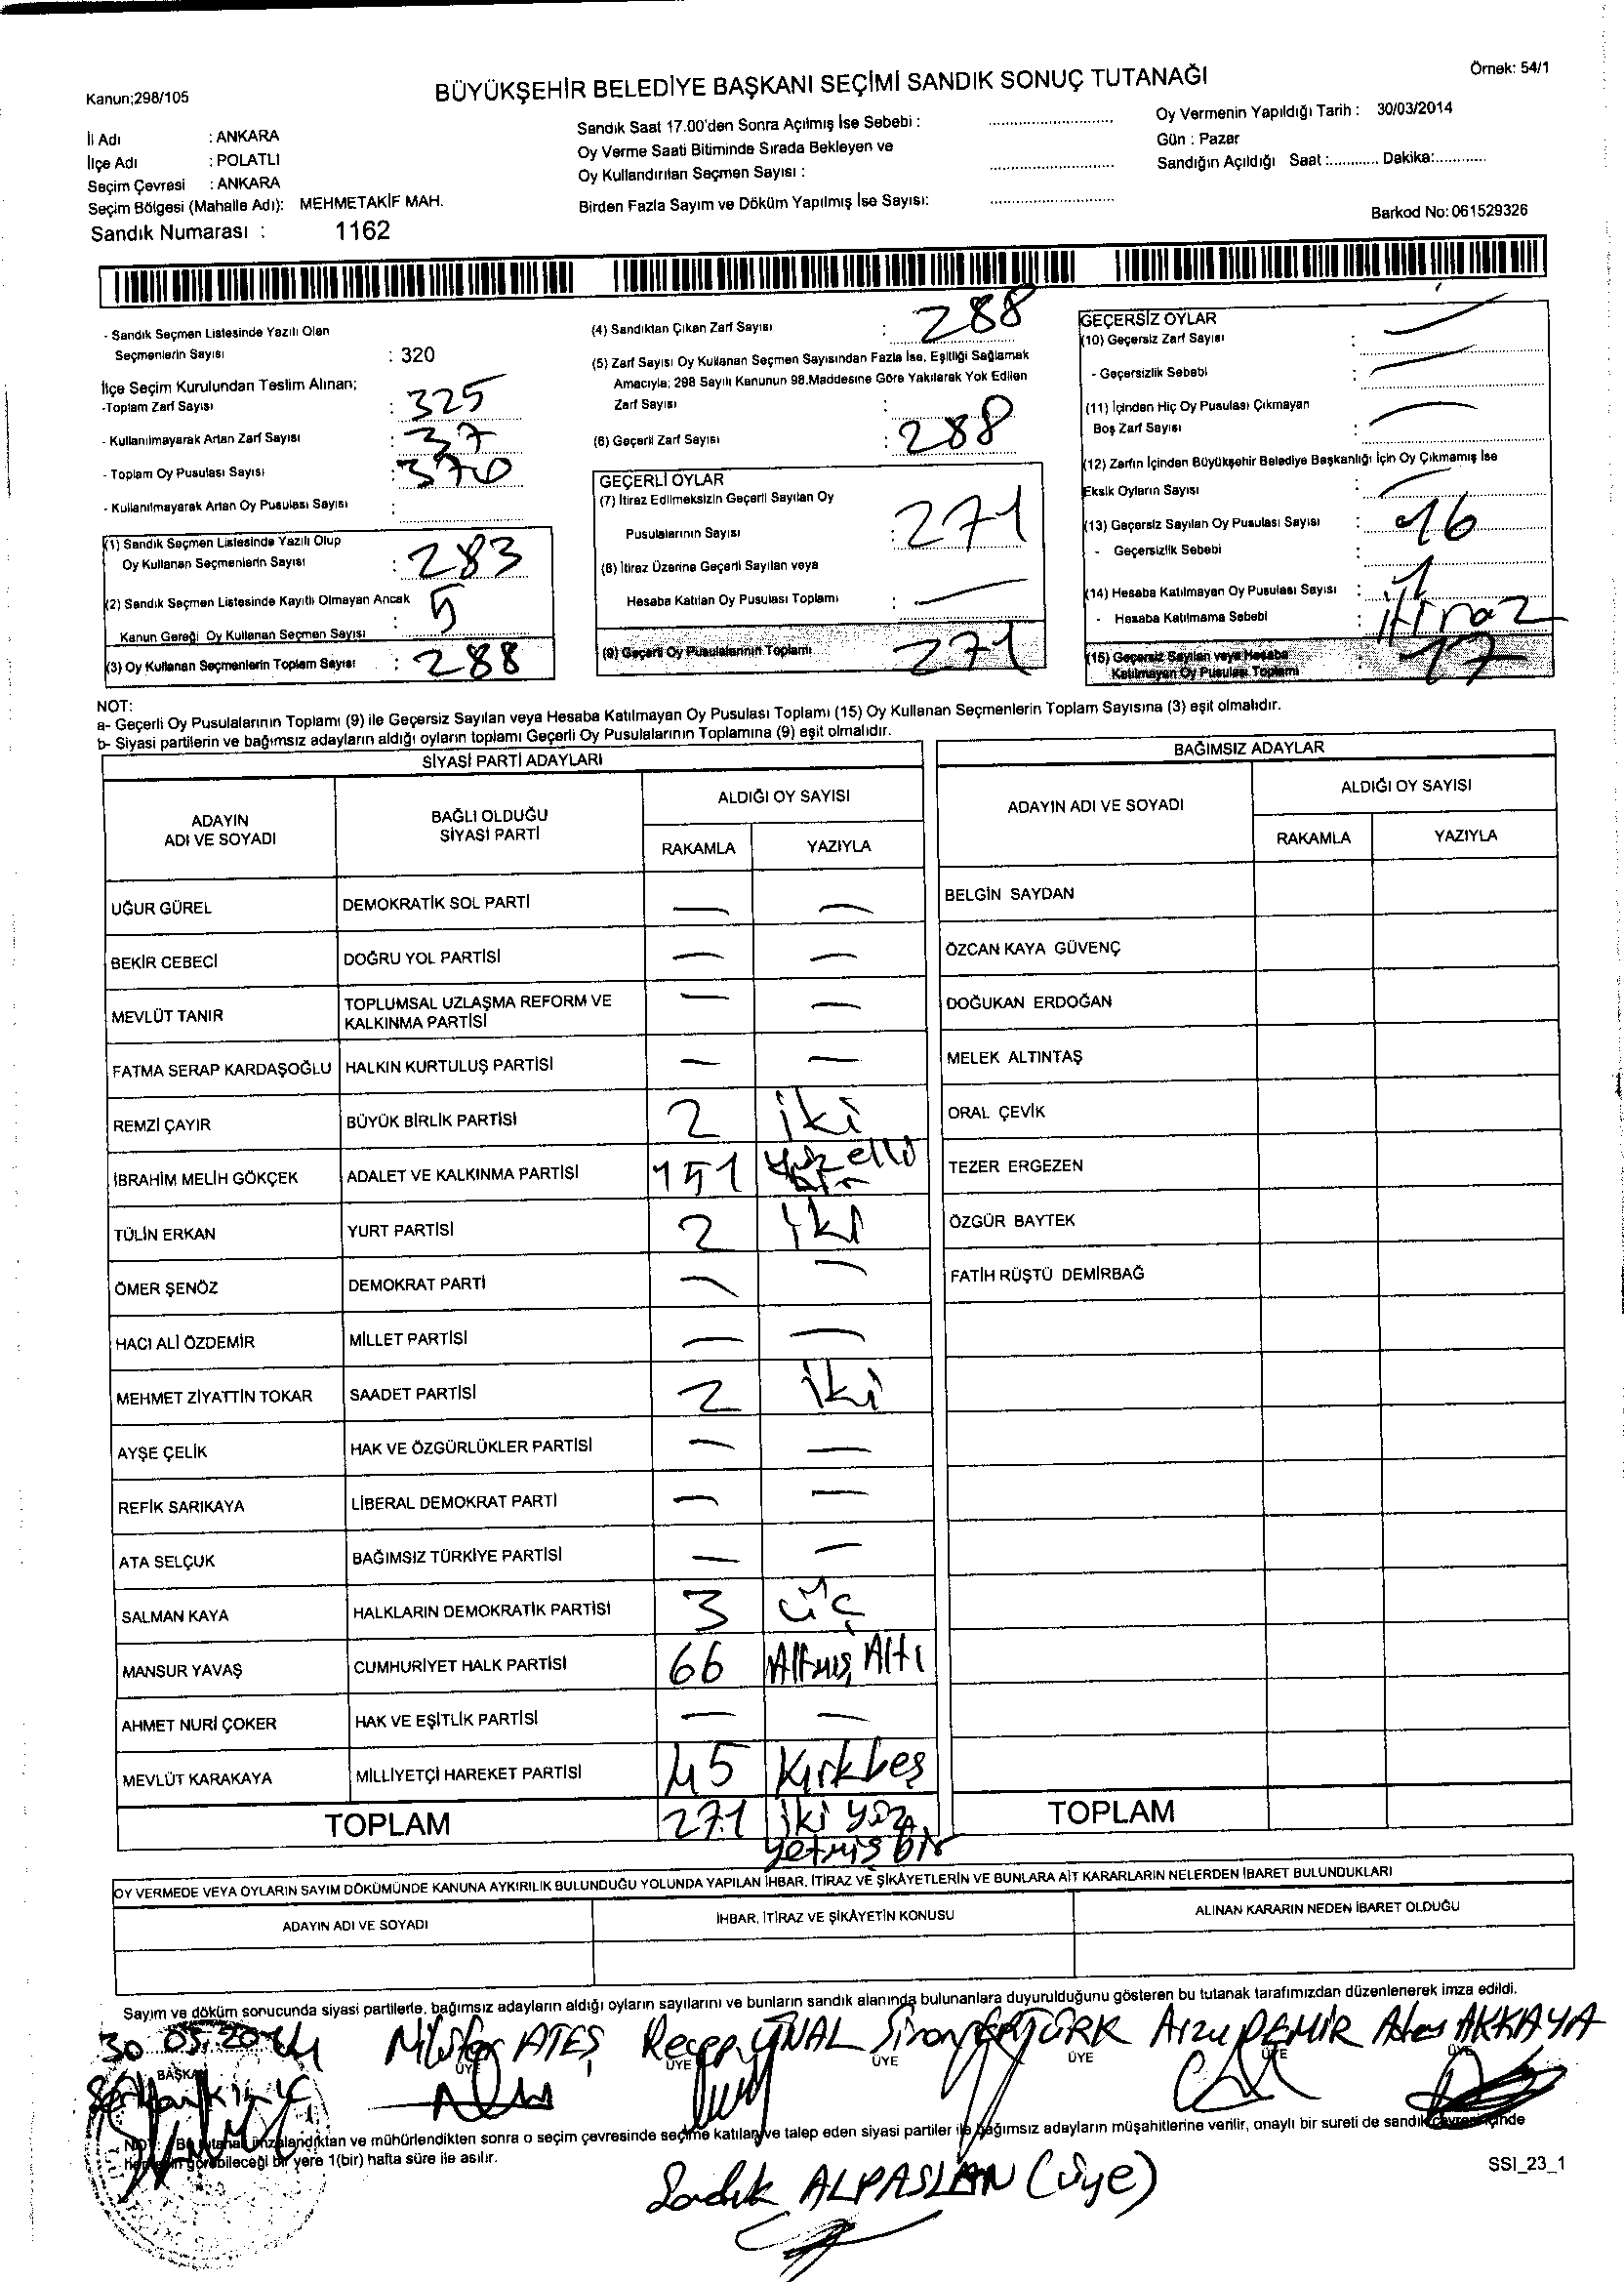 Kanun;298/105
BÜYÜKŞEHİR BELEDİYE BAŞKANI SEÇİMİ SANDIK SONUÇ TUTANAĞI
Örnek: 54/1
İl Adı : ANKARA
İlçe Adı : POLATLI
Seçim Çevresi : ANKARA
Seçim Bölgesi (Mahalle Adı): MEHMETAKİF MAH.
Sandık Numarası : 1162
Sandık Saat 17.00'den Sonra Açılmış İse Sebebi :
Oy Verme Saati Bitiminde Sırada Bekleyen ve
Oy Kullandırılan Seçmen Sayısı :
Birden Fazla Sayım ve Döküm Yapılmış İse Sayısı:
Oy Vermenin Yapıldığı Tarih : 30/03/2014
Gün : Pazar
Sandığın Açıldığı Saat :............ Dakika:............
Barkod No: 061529326
- Sandık Seçmen Listesinde Yazılı Olan
Seçmenlerin Sayısı : 320
İlçe Seçim Kurulundan Teslim Alınan;
-Toplam Zarf Sayısı : 325
- Kullanılmayarak Artan Zarf Sayısı : 37
- Toplam Oy Pusulası Sayısı : 370
- Kullanılmayarak Artan Oy Pusulası Sayısı :
(1) Sandık Seçmen Listesinde Yazılı Olup
Oy Kullanan Seçmenlerin Sayısı : 283
(2) Sandık Seçmen Listesinde Kayıtlı Olmayan Ancak
Kanun Gereği Oy Kullanan Seçmen Sayısı : 5
(3) Oy Kullanan Seçmenlerin Toplam Sayısı : 288
(4) Sandıktan Çıkan Zarf Sayısı : 288
(5) Zarf Sayısı Oy Kullanan Seçmen Sayısından Fazla İse, Eşitliği Sağlamak
Amacıyla; 298 Sayılı Kanunun 98.Maddesine Göre Yakılarak Yok Edilen
Zarf Sayısı :
(6) Geçerli Zarf Sayısı : 288
GEÇERLİ OYLAR
(7) İtiraz Edilmeksizin Geçerli Sayılan Oy
Pusulalarının Sayısı : 271
(8) İtiraz Üzerine Geçerli Sayılan veya
Hesaba Katılan Oy Pusulası Toplamı : —
(9) Geçerli Oy Pusulalarının Toplamı 271
GEÇERSİZ OYLAR
(10) Geçersiz Zarf Sayısı : —
- Geçersizlik Sebebi : —
(11) İçinden Hiç Oy Pusulası Çıkmayan
Boş Zarf Sayısı : —
(12) Zarfın İçinden Büyükşehir Belediye Başkanlığı İçin Oy Çıkmamış İse
Eksik Oyların Sayısı : —
(13) Geçersiz Sayılan Oy Pusulası Sayısı : 16
- Geçersizlik Sebebi :
(14) Hesaba Katılmayan Oy Pusulası Sayısı : 1
- Hesaba Katılmama Sebebi : itiraz
(15) Geçersiz Sayılan veya Hesaba
Katılmayan Oy Pusulası Toplamı : 17
NOT:
a- Geçerli Oy Pusulalarının Toplamı (9) ile Geçersiz Sayılan veya Hesaba Katılmayan Oy Pusulası Toplamı (15) Oy Kullanan Seçmenlerin Toplam Sayısına (3) eşit olmalıdır.
b- Siyasi partilerin ve bağımsız adayların aldığı oyların toplamı Geçerli Oy Pusulalarının Toplamına (9) eşit olmalıdır.
SİYASİ PARTİ ADAYLARI
ADAYIN ADI VE SOYADI
BAĞLI OLDUĞU SİYASİ PARTİ
ALDIĞI OY SAYISI
RAKAMLA YAZIYLA
UĞUR GÜREL DEMOKRATİK SOL PARTİ — —
BEKİR CEBECİ DOĞRU YOL PARTİSİ — —
MEVLÜT TANIR TOPLUMSAL UZLAŞMA REFORM VE KALKINMA PARTİSİ — —
FATMA SERAP KARDAŞOĞLU HALKIN KURTULUŞ PARTİSİ — —
REMZİ ÇAYIR BÜYÜK BİRLİK PARTİSİ 2 iki
İBRAHİM MELİH GÖKÇEK ADALET VE KALKINMA PARTİSİ 151 yüz elli bir
TÜLİN ERKAN YURT PARTİSİ 2 iki
ÖMER ŞENÖZ DEMOKRAT PARTİ — —
HACI ALİ ÖZDEMİR MİLLET PARTİSİ — —
MEHMET ZİYATTİN TOKAR SAADET PARTİSİ 2 iki
AYŞE ÇELİK HAK VE ÖZGÜRLÜKLER PARTİSİ — —
REFİK SARIKAYA LİBERAL DEMOKRAT PARTİ — —
ATA SELÇUK BAĞIMSIZ TÜRKİYE PARTİSİ — —
SALMAN KAYA HALKLARIN DEMOKRATİK PARTİSİ 3 üç
MANSUR YAVAŞ CUMHURİYET HALK PARTİSİ 66 Altmış Altı
AHMET NURİ ÇOKER HAK VE EŞİTLİK PARTİSİ — —
MEVLÜT KARAKAYA MİLLİYETÇİ HAREKET PARTİSİ 45 Kırkbeş
TOPLAM 271 iki yüz yetmiş bir
BAĞIMSIZ ADAYLAR
ADAYIN ADI VE SOYADI
ALDIĞI OY SAYISI
RAKAMLA YAZIYLA
BELGİN SAYDAN
ÖZCAN KAYA GÜVENÇ
DOĞUKAN ERDOĞAN
MELEK ALTINTAŞ
ORAL ÇEVİK
TEZER ERGEZEN
ÖZGÜR BAYTEK
FATİH RÜŞTÜ DEMİRBAĞ
TOPLAM
OY VERMEDE VEYA OYLARIN SAYIM DÖKÜMÜNDE KANUNA AYKIRILIK BULUNDUĞU YOLUNDA YAPILAN İHBAR, İTİRAZ VE ŞİKÂYETLERİN VE BUNLARA AİT KARARLARIN NELERDEN İBARET BULUNDUKLARI
ADAYIN ADI VE SOYADI
İHBAR, İTİRAZ VE ŞİKÂYETİN KONUSU
ALINAN KARARIN NEDEN İBARET OLDUĞU
Sayım ve döküm sonucunda siyasi partilerle, bağımsız adayların aldığı oyların sayılarını ve bunların sandık alanında bulunanlara duyurulduğunu gösteren bu tutanak tarafımızdan düzenlenerek imza edildi.
30 03.2014 Nilüfer ATEŞ Recep ÜNAL ERTÜRK Arzu DEMİR Ateş AKKAYA
BAŞKAN ÜYE ÜYE ÜYE ÜYE ÜYE ÜYE
NOT: Bu tutanak imzalandıktan ve mühürlendikten sonra o seçim çevresinde seçime katılan ve talep eden siyasi partiler ile bağımsız adayların müşahitlerine verilir, onaylı bir sureti de sandık çevresi içinde
herkesin görebileceği bir yere 1(bir) hafta süre ile asılır.
SSI_23_1
Sadık ALPASLAN (üye)